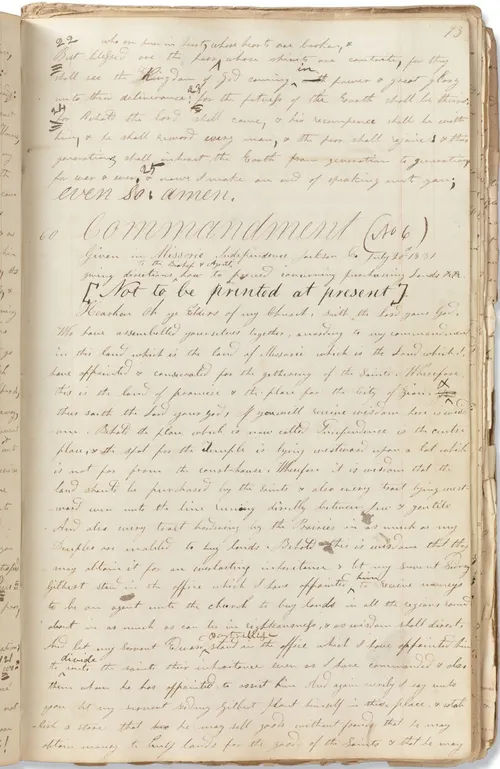 93
22 who are pure in heart, whose hearts are broken, &
But blessed are the poor whose spirits are contrite, for they
shall see the Kingdom of God coming in power & great glory
unto their deliverance: 23 for the fatness of the Earth shall be theirs;
24 for Behold the Lord shall come, & his recompence shall be with
him, & he shall reward every man, & the poor shall rejoice & their
generations shall inherit the Earth from generation to generation
for ever & ever, 25 & now I make an end of speaking unto you;
even so: amen.
60 Commandment (No 6)
Given in Missorie Independence Jackson Co July 20th 1831
to the Bishop & Agent
giving directions how to proceed concerning purchasing Lands &c &c.
[Not to be printed at present].
Hearken Oh ye Elders of my Church; saith the Lord your God.
Who have assembelled yourselves together, according to my commandment
in this land which is the land of Missorie which is the Land which I,
have appointed & consecrated for the gathering of the Saints. Wherefore
this is the land of promise & the place for the City of Zion. &
thus saith the Lord your God; If you will receive wisdom here is wisd
om. Behold the place which is now called Independence is the center
place, & the spot for the Temple is lying westward upon a lot which
is not far from the court-house: Wherefore it is wisdom that the
land should be purchased by the Saints & also every tract lying west-
ward even unto the line running directly between Jew & gentile
And also every tract bordering by the Prairies in as much as my
Desiples are enabled to buy lands. Behold this is wisdom that they
may obtain it for an everlasting inheritance & let my Servent Sidney
Gilbert stand in the office which I have appointed him to receive moneys
to be an agent unto the church to buy lands in all the regions round
about in as much as can be in righteousness, & as wisdom shall direct.
And let my Servant stand in the office which I have appointed him
to divide unto the saints their inheritance even as I have commanded & also
them whom he has appointed to assist him And again verily I say unto
you let my Servent Sidney Gilbert plant himself in this place & estab
lish a store that he may sell goods without fraud that he may
obtain money to buy lands for the good of the Saints & that he may